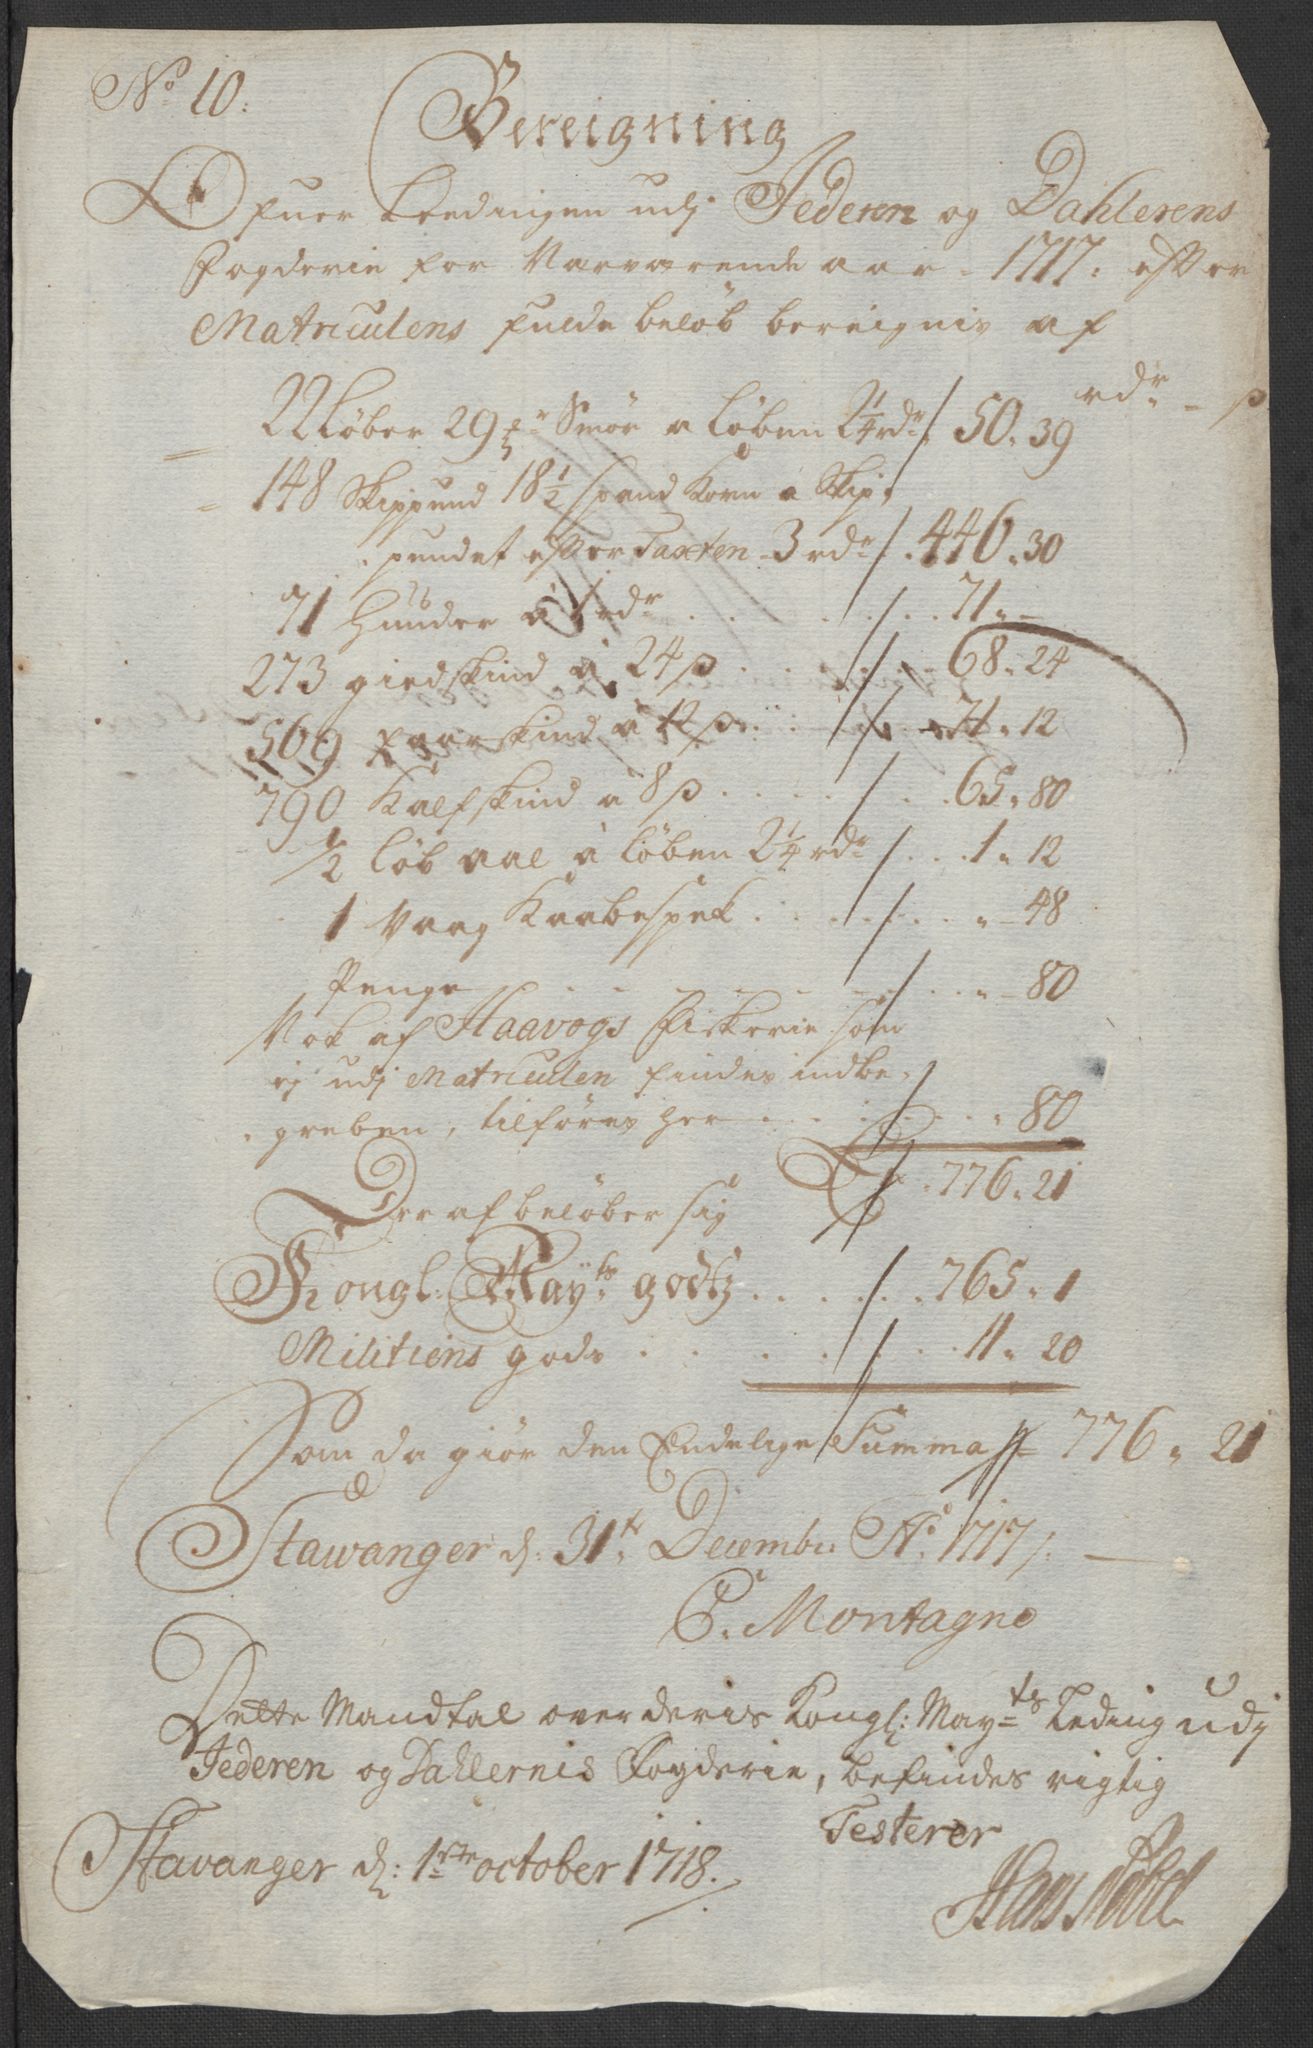 No 10:
Bereigning
Ofuer Leedingen udj Jederen og Dahlerens
fogderie for Nærværende aar 1717. efter
Matriculens fulde beløb bereignis af
rdr - β
22 Løber 29 Smør a Løben 2¼ rdr 50. 39
148 Skippund 18½ spand Korn a Skip,
pundet efter Taxten 3 rdr 446. 30
71 Huuder a 1 rdr 71. -
273 giedskind a 24 β 68. 24
569 faarskind a 12 β 71. 12
790 Kalfskind a 8 β 65. 80
½ Løb aal a Løben 2¼ rdr 1. 12
1 Vaag Kaabespek - 48
Penge - 80
Nok af Haavogs fiskerie som
ej udj Matriculen findes indbe,
greben, tilføres her 80
776. 21
Der af beløber sig
Kongl: Mayts godtz 765. 1
Militiens gods 11. 20
Som da giør den Endelige Summa 776. 21
Stawanger d: 31te Decembr: Ao. 1717/.
C. Montagne
Dette Mandtal over deris Kongl: Mayts Leding udj
Jederen og Dahlernes fogderie, befindes rigtig
Testerer
Stavanger d: 1ste october 1718.
Hans Nobel